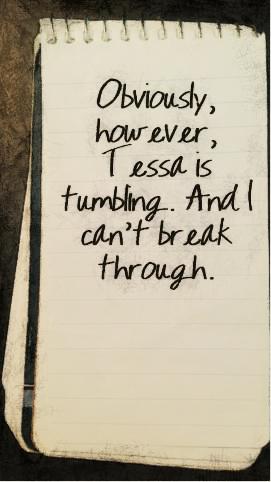 Obviously,
however,
Tessa is
tumbling. And I
can't break
through.